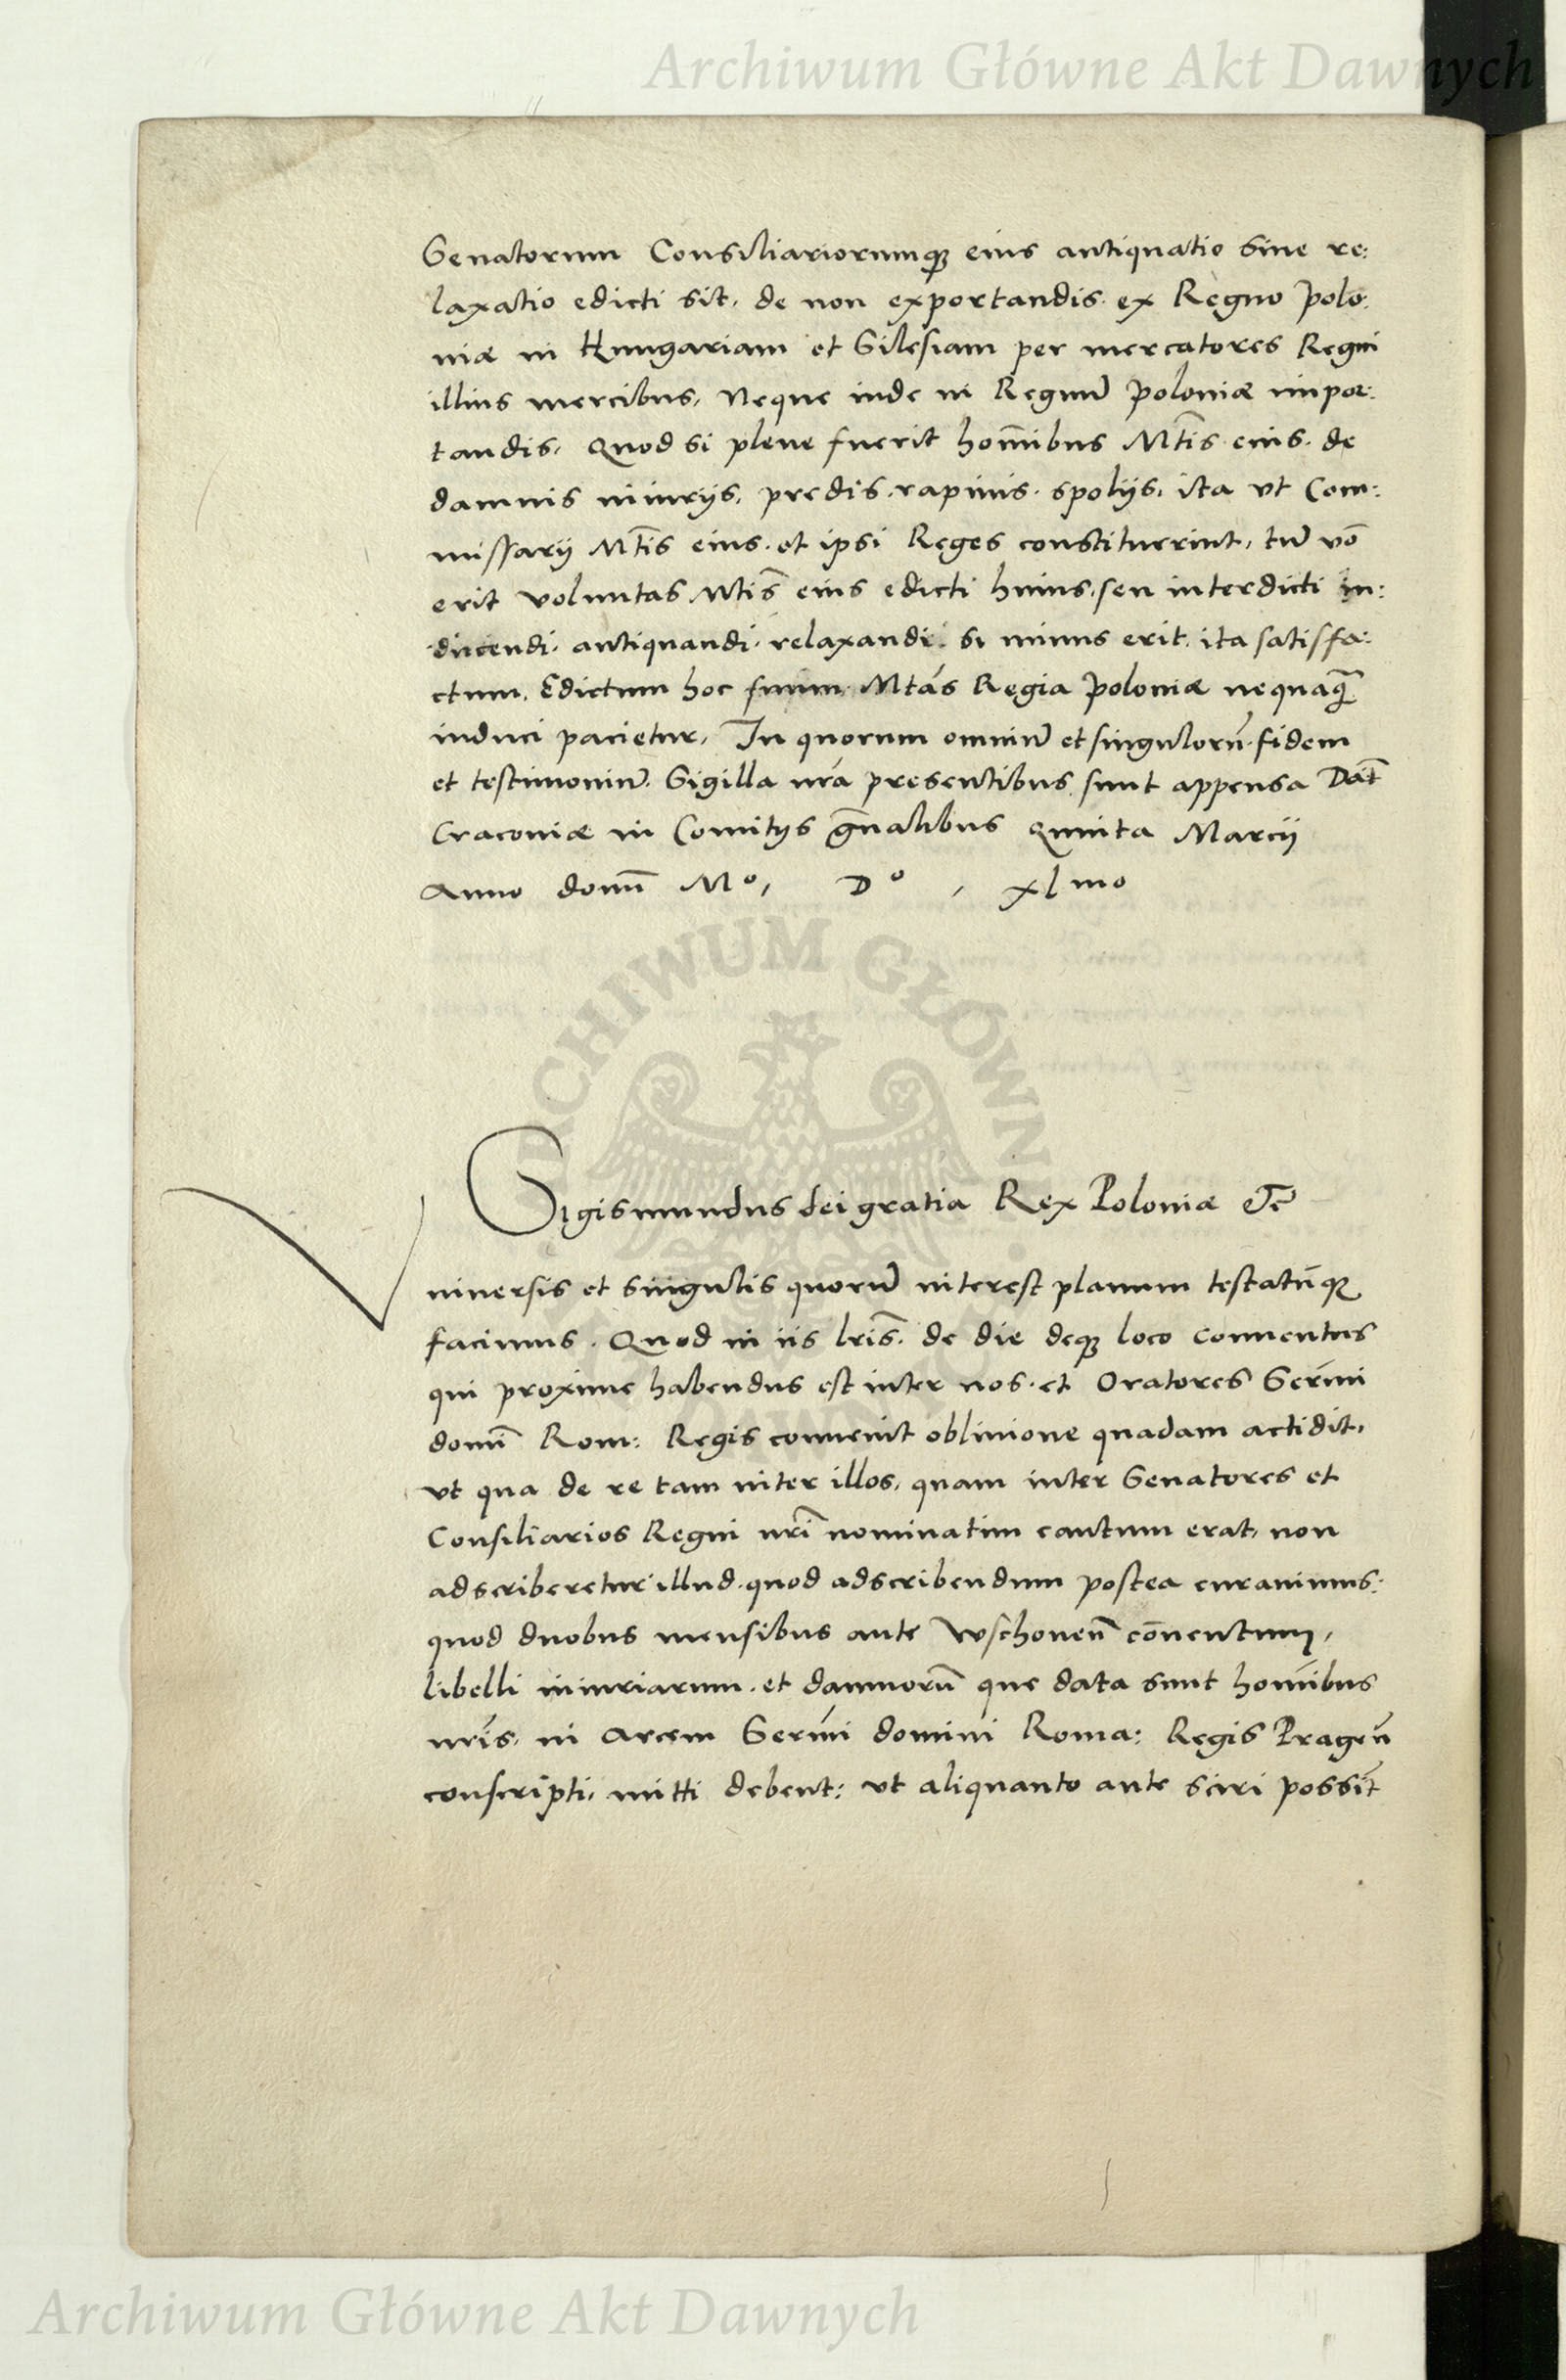 Archiwum Główne Akt Dawnych
Senatorum Consiliariorumqȝ eius antiquatio sine re:
laxatio edicti sit, de non exportandis ex Regno polo:
niæ in Hungariam et Silesiam per mercatores Regni
illius mercibus, Neque inde in Regnũ poloniæ impor:
tandis, Quod si plene fuerit hom̃ibus Mt̃is eius de
damnis iniurijs, predis, rapinis, spolijs, ita vt Com:
missarij Mt̃is eius et ipsi Reges constituerint, tũ võ
erit voluntas Mtis̃ eius edicti huius, seu interdicti in:
ducendi, antiquandi, relaxandi, si minus erit ita satisfa:
ctum, Edictum hoc suum Mtás Regia poloniæ nequaq̃
induci pacietur, In quorum omniũ et singulorũ fidem
et testimoniũ, Sigilla nrã presentibus sunt appensa Dat̃
Cracoviæ in Comitijs gñalibus Quinta Marcij
Anno domĩ Mº, Dº, xlmo
ARCHIWUM GŁÓWNE
AKT DAWNYCH
Sigismundus dei gratia Rex Poloniæ Etc̃
Vniversis et singulis quorũ interest planum testatũqȝ
facimus. Quod in iis lris̃ de die deqȝ loco conuentus
qui proxime habendus est inter nos et Oratores Serm̃i
domĩ Rom: Regis conuenit obliuione quadam actidit,
vt qua de re tam inter illos, quam inter Senatores et
Consiliarios Regni nrĩ nominatim cautum erat, non
adscriberetur illud quod adscribendum postea curauimus:
quod duobus mensibus ante Wschoueñ cõuentum,
libelli iniuriarum et damnorũ que data sunt hom̃ibus
nrĩs in Arcem Serm̃i domini Roma: Regis Prageñ
conscripti, mitti debent: vt aliquanto ante sciri possit̃
Archiwum Główne Akt Dawnych